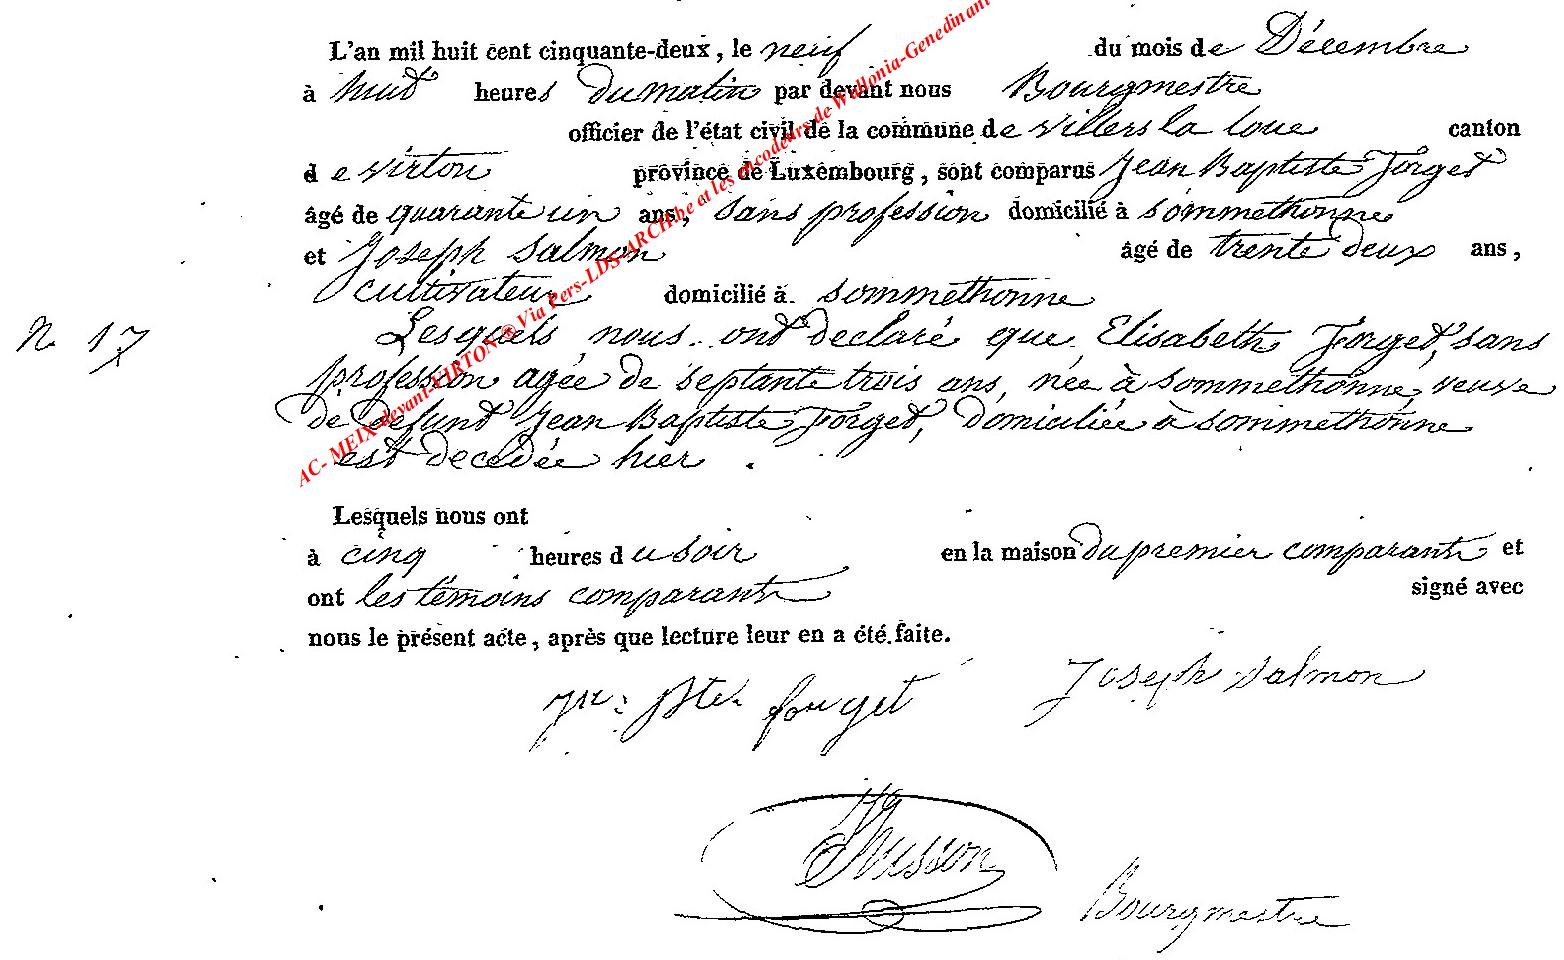 L'an mil huit cent cinquante-deux, le neuf du mois de Décembre
à huit heures du matin par devant nous Bourgmestre
officier de l'état civil de la commune de Villers la loue canton
de Virton province de Luxembourg, sont comparus Jean Baptiste Forget
âgé de quarante un ans, sans profession domicilié à Sommethonne
et Joseph Salmon âgé de trente deux ans,
cultivateur domicilié à Sommethonne
N. 17
Lesquels nous ont declaré que Elisabeth Forget, sans
profession agée de septante trois ans, née à Sommethonne, veuve
de défunt Jean Baptiste Forget, domiciliée à Sommethonne
est decedée hier.
Lesquels nous ont
à cinq heures du soir en la maison du premier comparant et
ont les témoins comparant signé avec
nous le présent acte, après que lecture leur en a été faite.
Jn: Bte forget Joseph Salmon
Husson
Bourgmestre
AC- MEIX-devant-VIRTON ® Via Pers-LDS-ARCH.be et les encodeurs de Wallonia-Genedinant